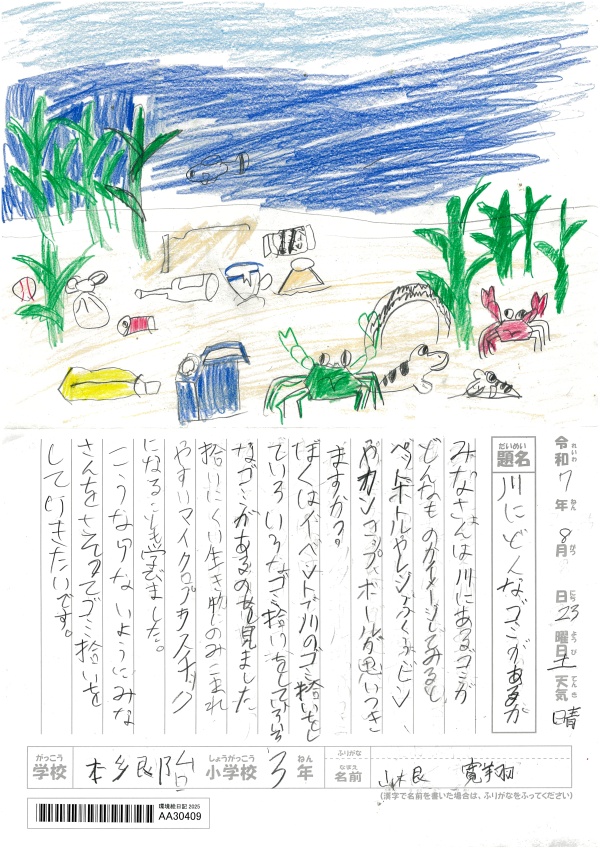 令和れいわ 7 年ねん 8 月がつ 23 日にち 土 曜日ようび 天気てんき 晴
題名だいめい 川にどんなゴミがあるか
みなさんは川にあるゴミが
どんなものかイメージしてみると
ペットボトルやレジぶくろビン
やカンコップボールが思いつき
ますか?
ぼくはイベントで川のゴミ拾いをし
ていろいろなゴミ拾いをしていろいろ
なゴミがあるのを見ました
拾いにくい生き物にのみこまれ
やすいマイクロプラスチック
になることも学びました。
こうならないようにみな
さんをさそってゴミ拾いを
して行きたいです。
学校がっこう 本郷台 小学校しょうがっこう 3 年ねん
ふりがな
名前なまえ
(漢字で名前を書いた場合は、ふりがなをふってください)
環境絵日記 2025
AA30409